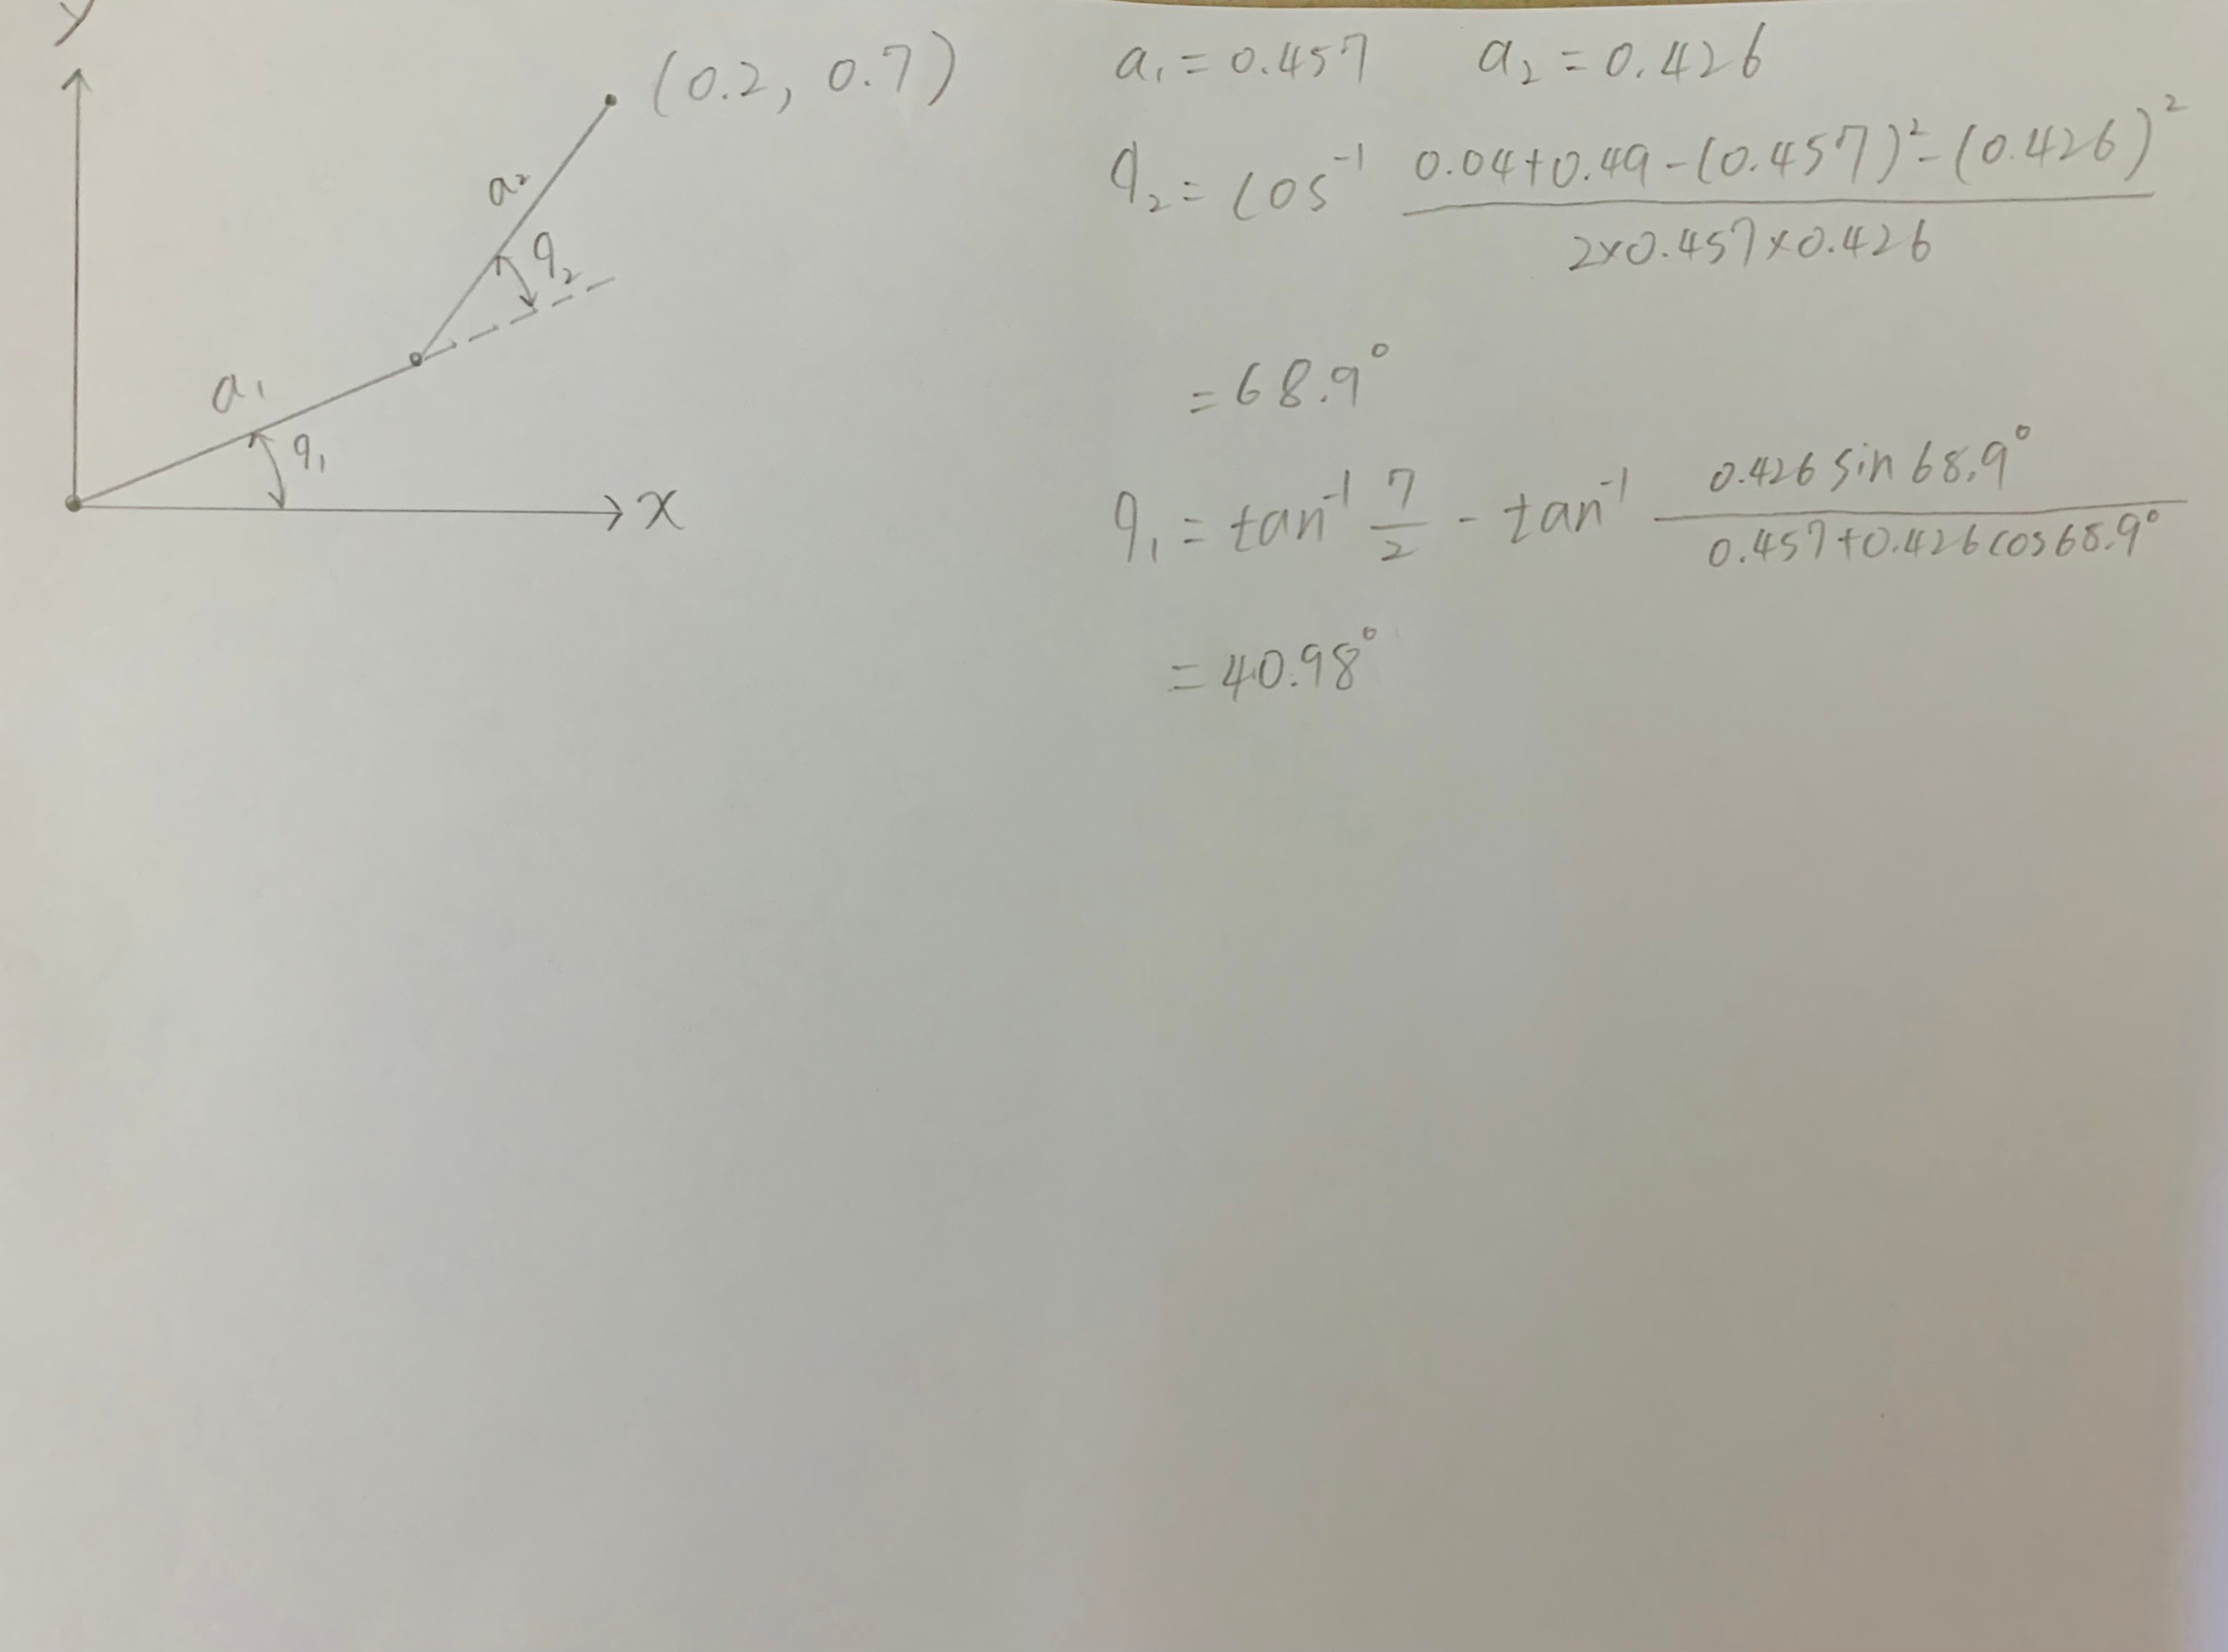 y
(0.2, 0.7)
a₂
q₂
a₁
q₁
x
a₁ = 0.457 a₂ = 0.426
q₂ = cos⁻¹ (0.04+0.49-(0.457)²-(0.426)²) / (2×0.457×0.426)
= 68.9°
q₁ = tan⁻¹ 7/2 - tan⁻¹ (0.426 sin 68.9°) / (0.457+0.426 cos 68.9°)
= 40.98°